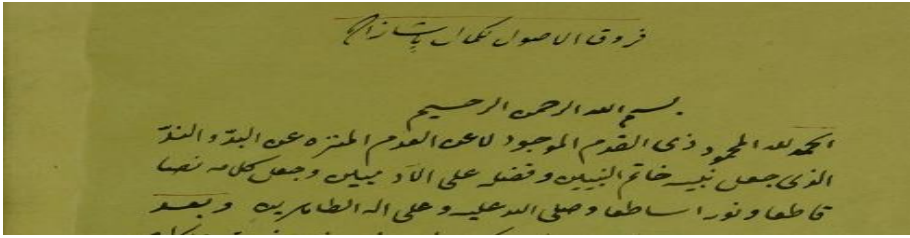 فروق الاصول لكمال پاشا زاده
بسم الله الرحمن الرحيم
الحمد لله المحمود ذى القدم الموجود لا عن العدم المنزه عن البدّ والندّ
الذى جعل نبيه خاتم النبيين وفضله على الآدميين وجعل كلامه نصا
قاطعا ونورا ساطعا وصلى الله عليه وعلى اله الطاهرين وبعد